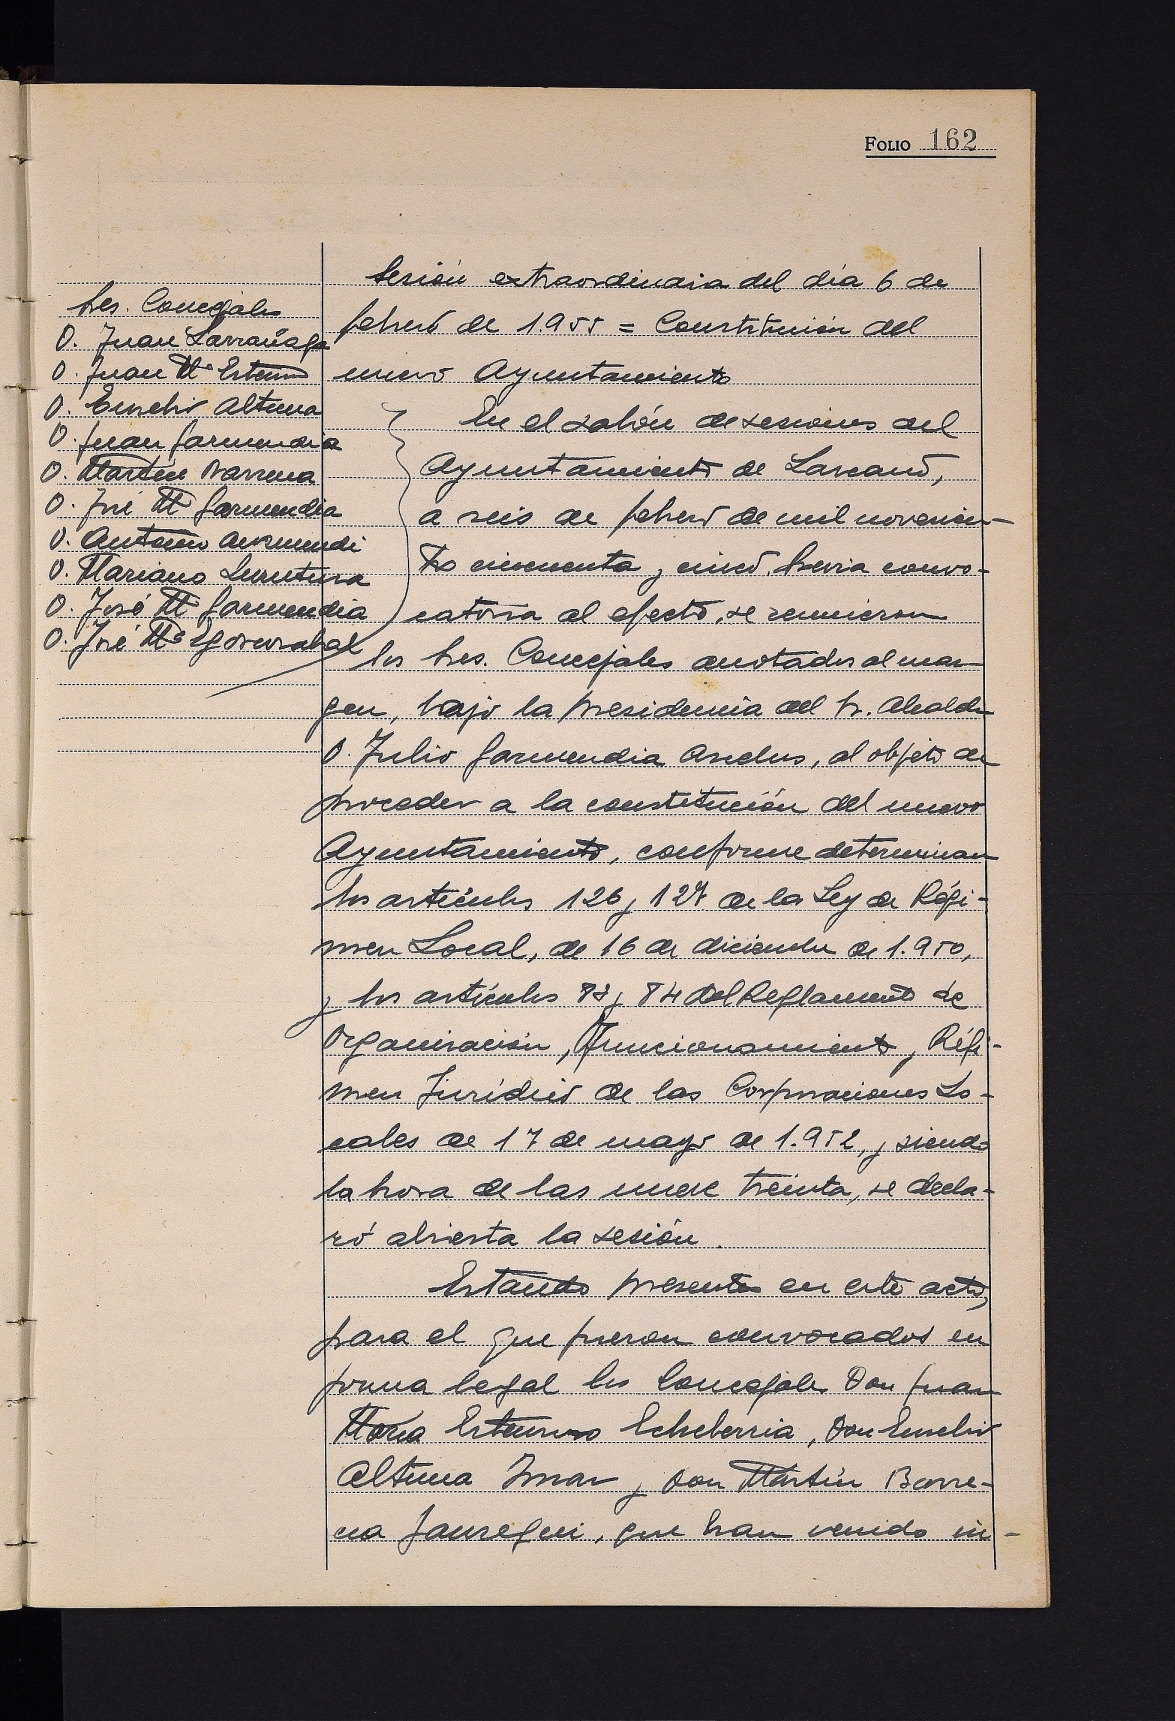 FOLIO 162
Sesión extraordinaria del día 6 de
febrero de 1.955 = Constitución del
nuevo Ayuntamiento
Sres. Concejales
D. Juan Larrañaga
D. Juan Mª Estensoro
D. Eusebio Altuna
D. Juan Garmendia
D. Martín Barrena
D. José Mª Garmendia
D. Antonio Aurmendi
D. Mariano
D. José Mª Garmendia
D. José Mª
En el salón de sesiones del
Ayuntamiento de Lazcano,
a seis de febrero de mil novecien-
tos cincuenta y cinco, previa convo-
catoria al efecto, se reunieron
los Sres. Concejales anotados al mar
gen, bajo la presidencia del Sr. Alcalde
D. Julio Garmendia, al objeto de
proceder a la constitución del nuevo
Ayuntamiento, conforme determinan
los artículos 126 y 127 de la Ley de Régi-
men Local, de 16 de diciembre de 1.950,
y los artículos 83 y 84 del Reglamento de
Organización, Funcionamiento y Régi-
men Jurídico de las Corporaciones Lo-
cales de 17 de mayo de 1.952, y siendo
la hora de las nueve treinta, se decla-
ró abierta la sesión.
Estando presentes en este acto,
para el que fueron convocados en
forma legal los Concejales Don Juan
María Estensoro Echeberria, Don Eusebio
Altuna Imaz y Don Martín Barre-
na Jauregui, que han venido in-